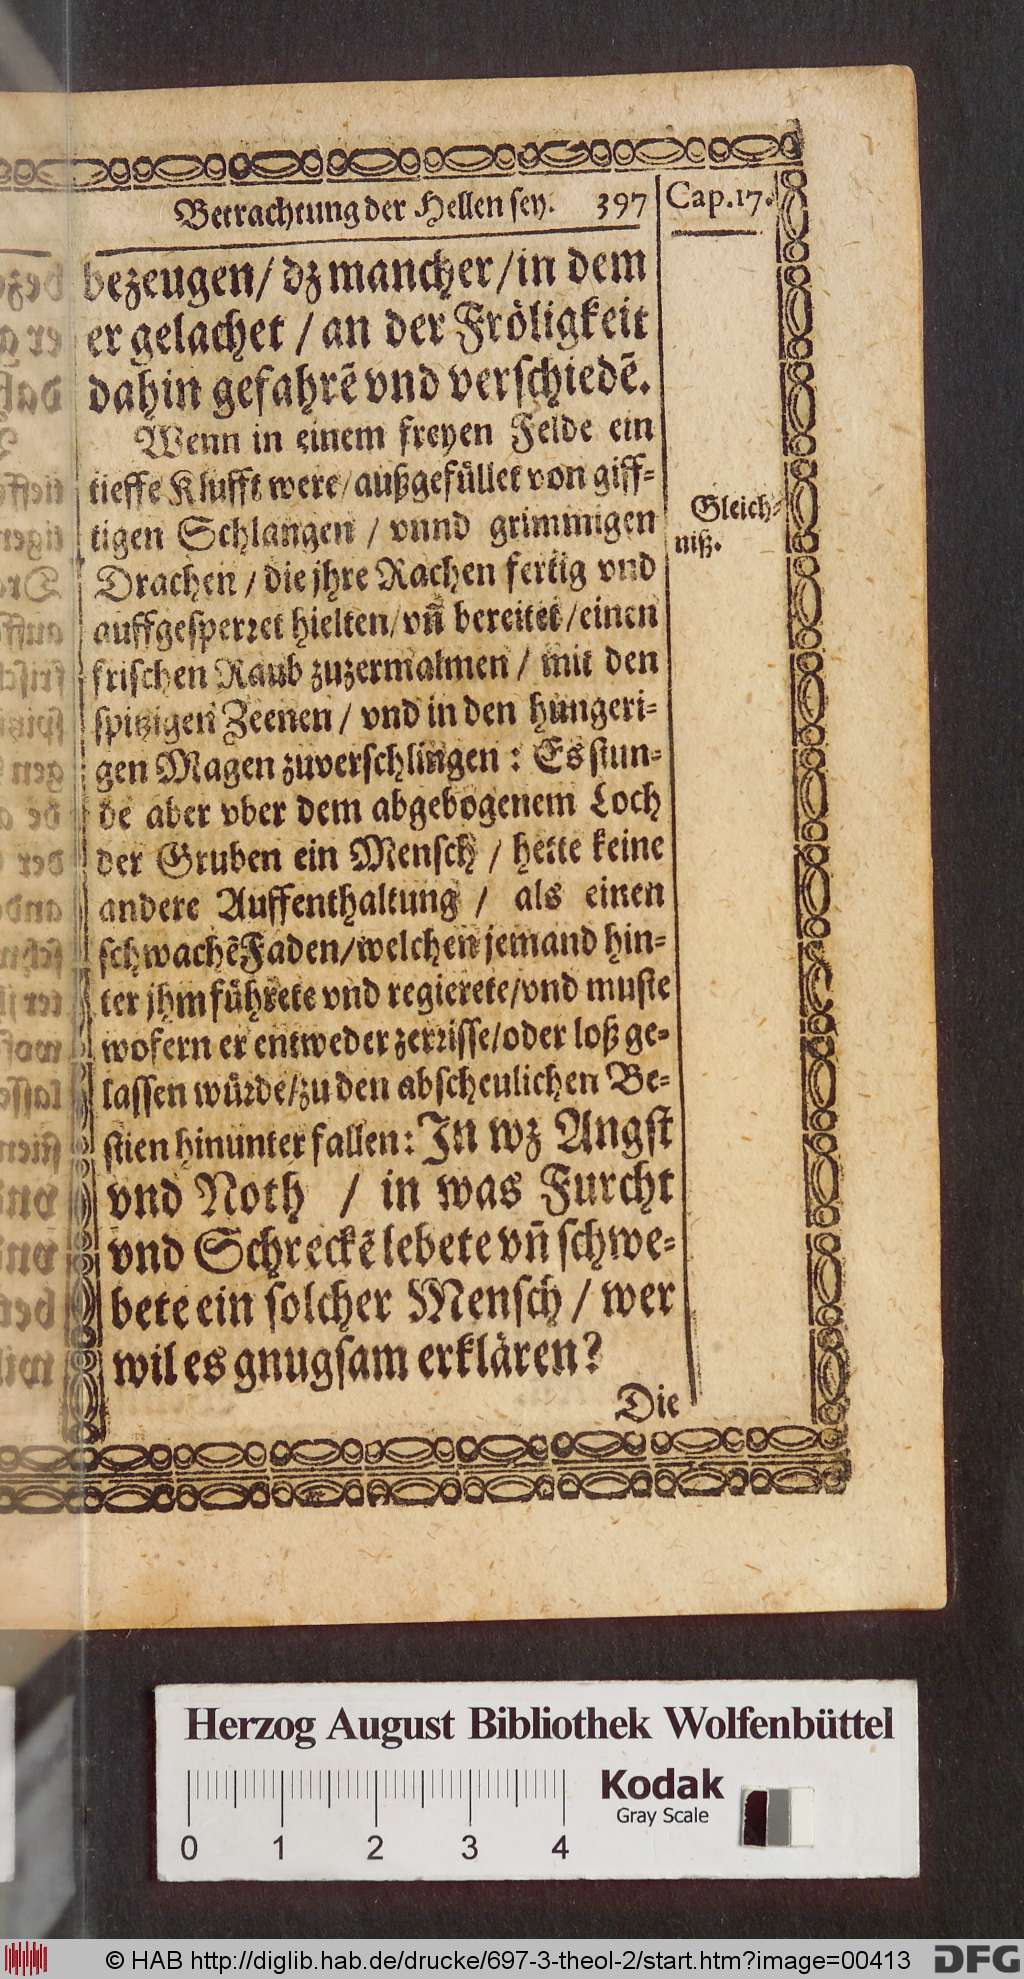 Betrachtung der Hellen sey. 397 Cap.17.
bezeugen/ dz mancher/in dem
er gelachet / an der Fröligkeit
dahin gefahrē vnd verschiedē.
Wenn in einem freyen Felde ein
tieffe Klufft were/außgefüllet von giff-
tigen Schlangen / vnnd grimmigen
Drachen / die jhre Rachen fertig vnd
auffgesperret hielten/vn̄ bereitet/einen
frischen Raub zuzermalmen / mit den
spitzigen Zeenen / vnd in den hungeri-
gen Magen zuverschlingen : Es stun-
de aber vber dem abgebogenem Loch
der Gruben ein Mensch / hette keine
andere Auffenthaltung / als einen
schwachē Faden/welchen jemand hin-
ter jhm führete vnd regierete/vnd muste
wofern er entweder zerrisse/oder loß ge-
lassen würde/zu den abscheulichen Be-
stien hinunter fallen: In wz Angst
vnd Noth / in was Furcht
vnd Schreckē lebete vn̄ schwe-
bete ein solcher Mensch / wer
wil es gnugsam erklären?
Die
Gleich-
niß.
Herzog August Bibliothek Wolfenbüttel
Kodak
Gray Scale
0 1 2 3 4
© HAB http://diglib.hab.de/drucke/697-3-theol-2/start.htm?image=00413 DFG